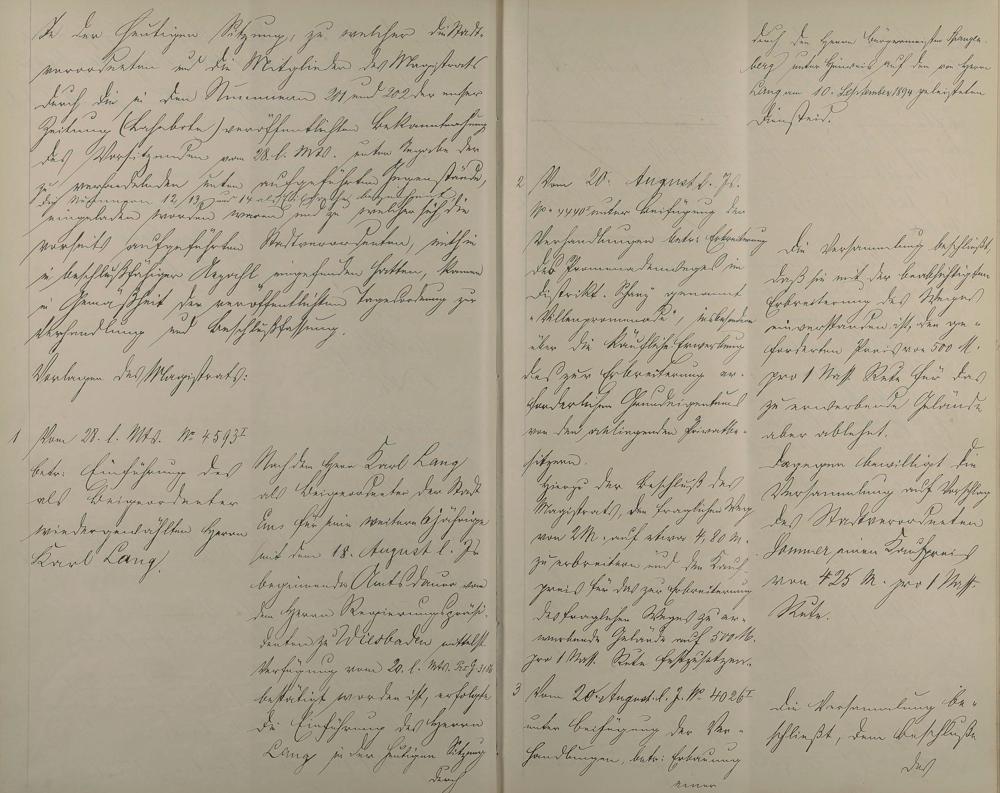 In der heutigen Sitzung, zu welcher die Stadt-
verordneten und die Mitglieder des Magistrats
durch die in den Nummern 201 und 202 der emser
Zeitung (Lahnbote) veröffentlichten Bekanntmachung
des Vorsitzenden vom 28. l. Mts. unter Angabe der
zu verhandelnden unten aufgeführten Gegenstände,
die Nummern 12, 13 und 14 als
eingeladen worden waren und zu welcher sich die
vorseits aufgeführten Stadtverordneten, mithin
in beschlußfähiger Anzahl eingefunden hatten, kamen
in Gemäßheit der veröffentlichten Tagesordnung zur
Verhandlung und Beschlußfassung.
Vorlagen des Magistrats:
1 Vom 28. l. Mts. No 4593 I
betr: Einführung des
als Beigeordneter
wiedergewählten Herrn
Karl Lang.
Nachdem Herr Karl Lang
als Beigeordneter der Stadt
Ems für eine weitere 6jährige
mit dem 18. August l. Js
beginnende Amtsdauer von
dem Herrn Regierungspräsi-
denten zu Wiesbaden mittelst
Verfügung vom 20. l. Mts.
bestätigt worden ist, erfolgte
die Einführung des Herrn
Lang in der heutigen Sitzung
durch
durch den Herrn Bürgermeister Spangen-
berg unter Hinweis auf den von Herrn
Lang am 10. September 1894 geleisteten
Diensteid.
2 Vom 20. August l. Js.
No 4440 I unter Beifügung der
Verhandlungen betr: Erbreiterung
des Promenadenweges im
Distrikt genannt
"Villenpromenade", insbesondere
über die käufliche Erwerbung
des zur Erbreiterung er-
forderlichen Grundeigentums
von den anliegenden Privatbe-
sitzern.
Hierzu der Beschluß des
Magistrats, den fraglichen Weg
von 2 M. auf etwa 4,80 M.
zu erbreitern und den Kauf-
preis für das zur Erbreiterung
des fraglichen Weges zu er-
werbende Gelände auf 500 M.
pro 1 Nass. Rute festzusetzen.
Die Versammlung beschließt,
daß sie mit der beabsichtigten
Erbreiterung des Weges
einverstanden ist, den ge-
forderten Preis von 500 M.
pro 1 Nass. Rute für das
zu erwerbende Gelände
aber ablehnt.
Dagegen bewilligt die
Versammlung auf Vorschlag
des Stadtverordneten
Sommer einen Kaufpreis
von 425 M. pro 1 Nass.
Rute.
3 Vom 20. August l. J. No 4026 I
unter Beifügung der Ver-
handlungen, betr: Erbauung
einer
Die Versammlung be-
schließt, dem Beschlusse
des